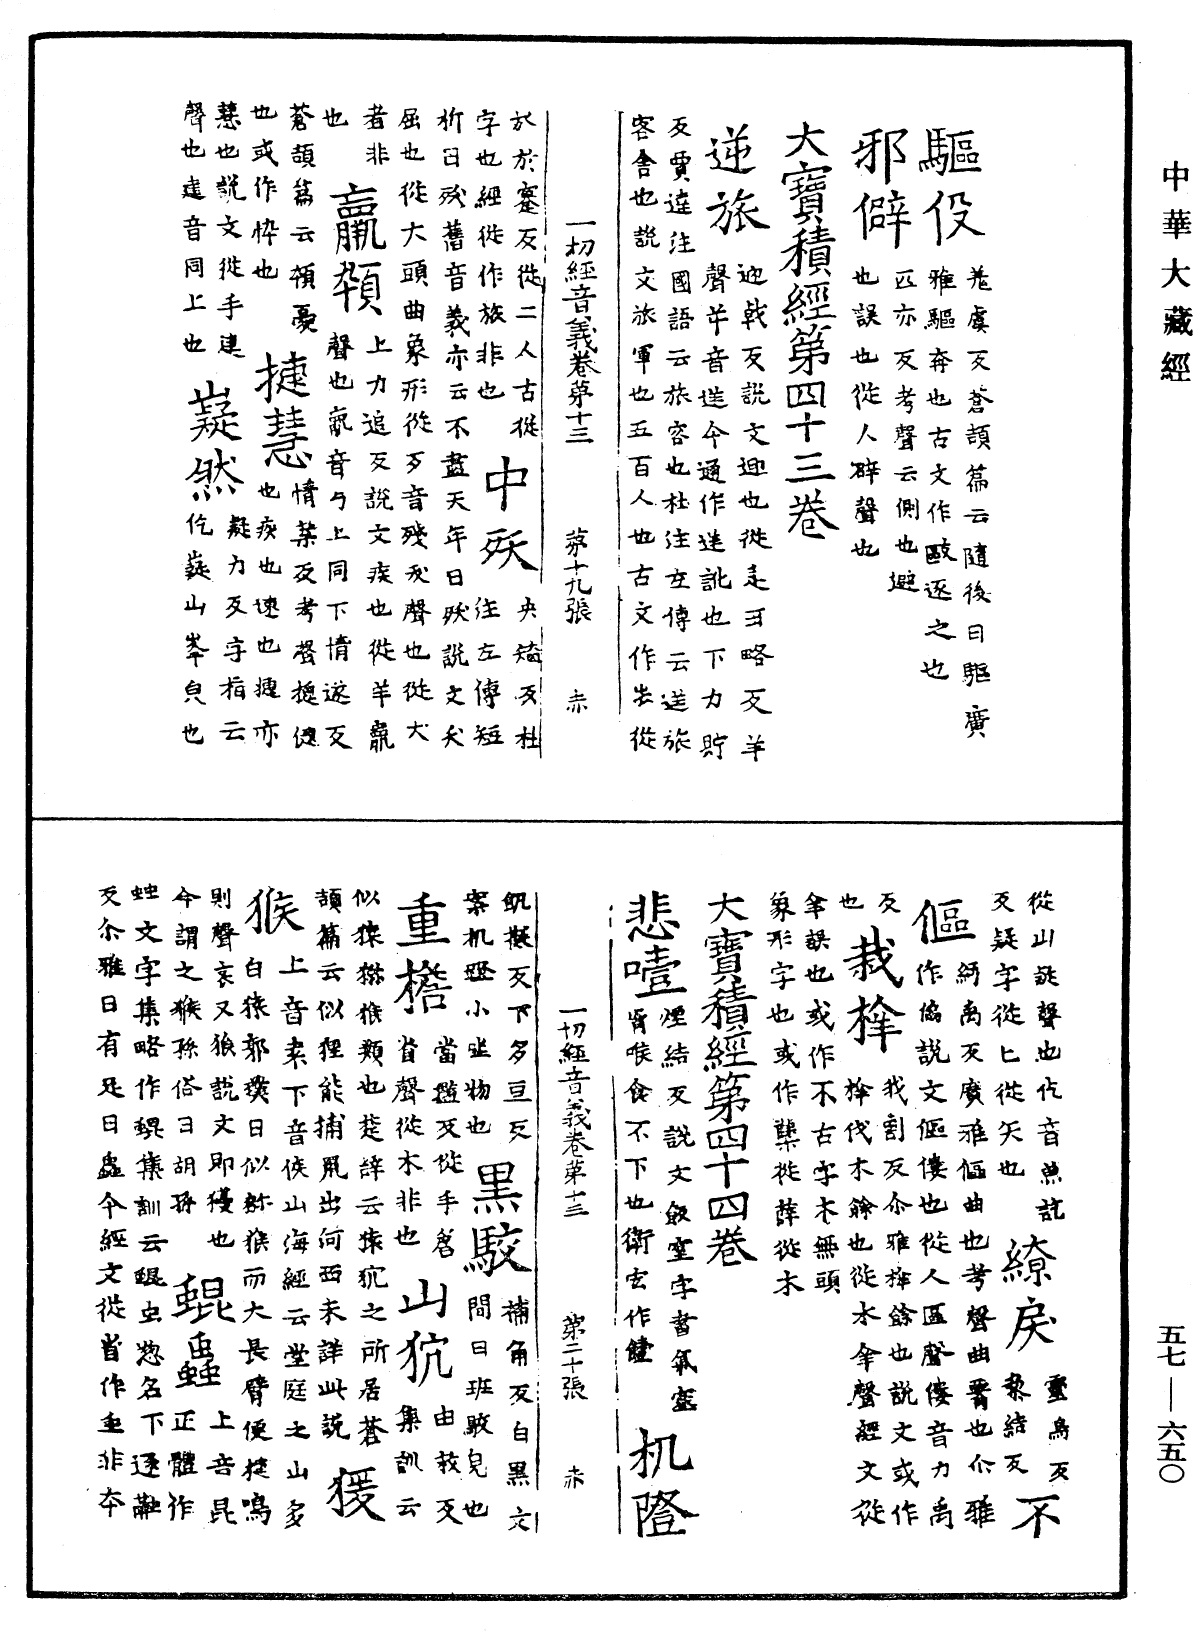 中華大藏經
驅役
羌虞反蒼頡篇云隨後曰驅廣
雅驅奔也古文作敺逐之也
邪僻
匹亦反考聲云側也避
也誤也從人辟聲也
大寶積經第四十三卷
逆旅
迎戟反說文迎也從辵屰略反羊
聲屰音逆今通作迸訛也下力貯
反賈逵注國語云旅客也杜注左傳云逆旅
客舍也說文旅軍也五百人也古文作㫺從
一切經音義卷第十三 第十九張 赤
㫃於蹇反從二人古從
字也經從作旅非也
中殀
夭矯反杜
注左傳短
折曰殀舊音義亦云不盡天年曰殀說文夭
屈也從大頭曲象形從歹音殘夭聲也從犬
者非
也
羸顇
上力追反說文疾也從羊
聲也音上同下情遂反
蒼頡篇云顇憂
也或作悴也
捷慧
情葉反考聲捷健
也疾也速也捷亦
慧也說文從手疌
聲也疌音同上也
嶷然
凝力反字指云
仡嶷山峯皃也
從山疑聲也仡音魚訖
反疑字從匕從矢也
繚戾
靈鳥反
黎結反
不
傴
紆禹反廣雅傴曲也考聲曲脊也尒雅
作傴說文傴僂也從人區聲僂音力禹
反
也
栽㭕
我割反尒雅㭕餘也說文或作
㭕伐木餘也從木聲經文從
誤也或作不古字木無頭
象形字也或作櫱從薛從木
大寶積經第四十四卷
悲噎
煙結反說文飯窒字書氣塞
胷喉食不下也衛宏作饐
机隥
一切經音義卷第十三 第二十張 赤
飢擬反下多亘反
案机隥小坐物也
黑駮
補角反白黑文
間曰班駮皃也
重檐
當濫反從手詹
聲從木非也
山狖
由救反
集訓云
似猿猕猴類也楚辭云猿狖之所居蒼
頡篇云似狸能捕鼠出河西未詳此說
猨
猴
上音袁下音侯山海經云堂庭之山多
白猿郭璞曰似猕猴而大長臂便捷鳴
則聲哀又猴說文即㹶也
今謂之猴孫俗曰胡孫
蜫䗬
上音昆
正體作
䖵文字集略作蜫集訓云蜫虫惣名下逐融
反尒雅曰有足曰蟲今經文從省作虫非本
五七—六五〇